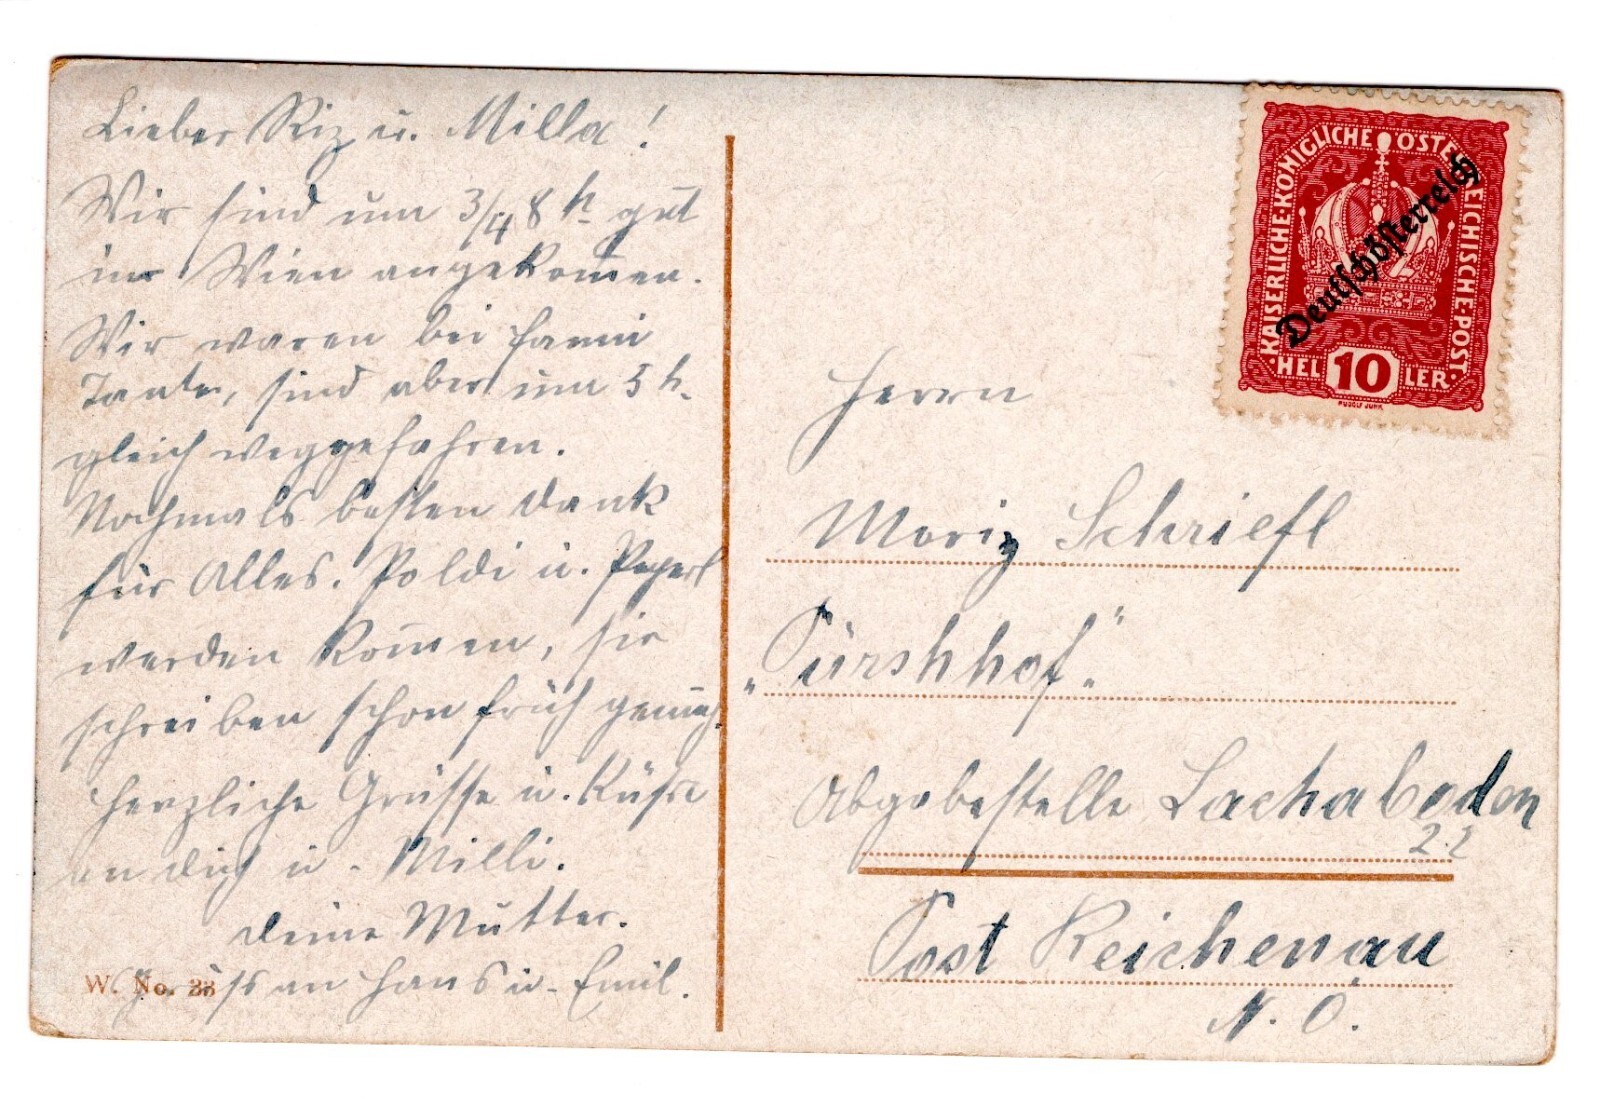 Lieber Riz u. Milla!
Wir sind um 3/4 8 h gut
in Wien angekommen.
Wir waren bei Fanni
Tante, sind aber um 5 h.
gleich weggefahren.
Nochmals besten Dank
für Alles. Poldi u. Peperl
werden kommen, sie
schreiben schon früh genug.
Herzliche Grüsse u. Küsse
an dich u. Milli.
Deine Mutter.
Gruss an Hans u. Emil.
W. No. 23
KAISERLICHE·KÖNIGLICHE ÖSTERREICHISCHE·POST·
Deutschösterreich
HEL 10 LER
RUDOLF JUNK
Herrn
Moriz Schriefl
"Pürshhof"
Abgabestelle Lachaboden
22
Post Reichenau
N. Ö.